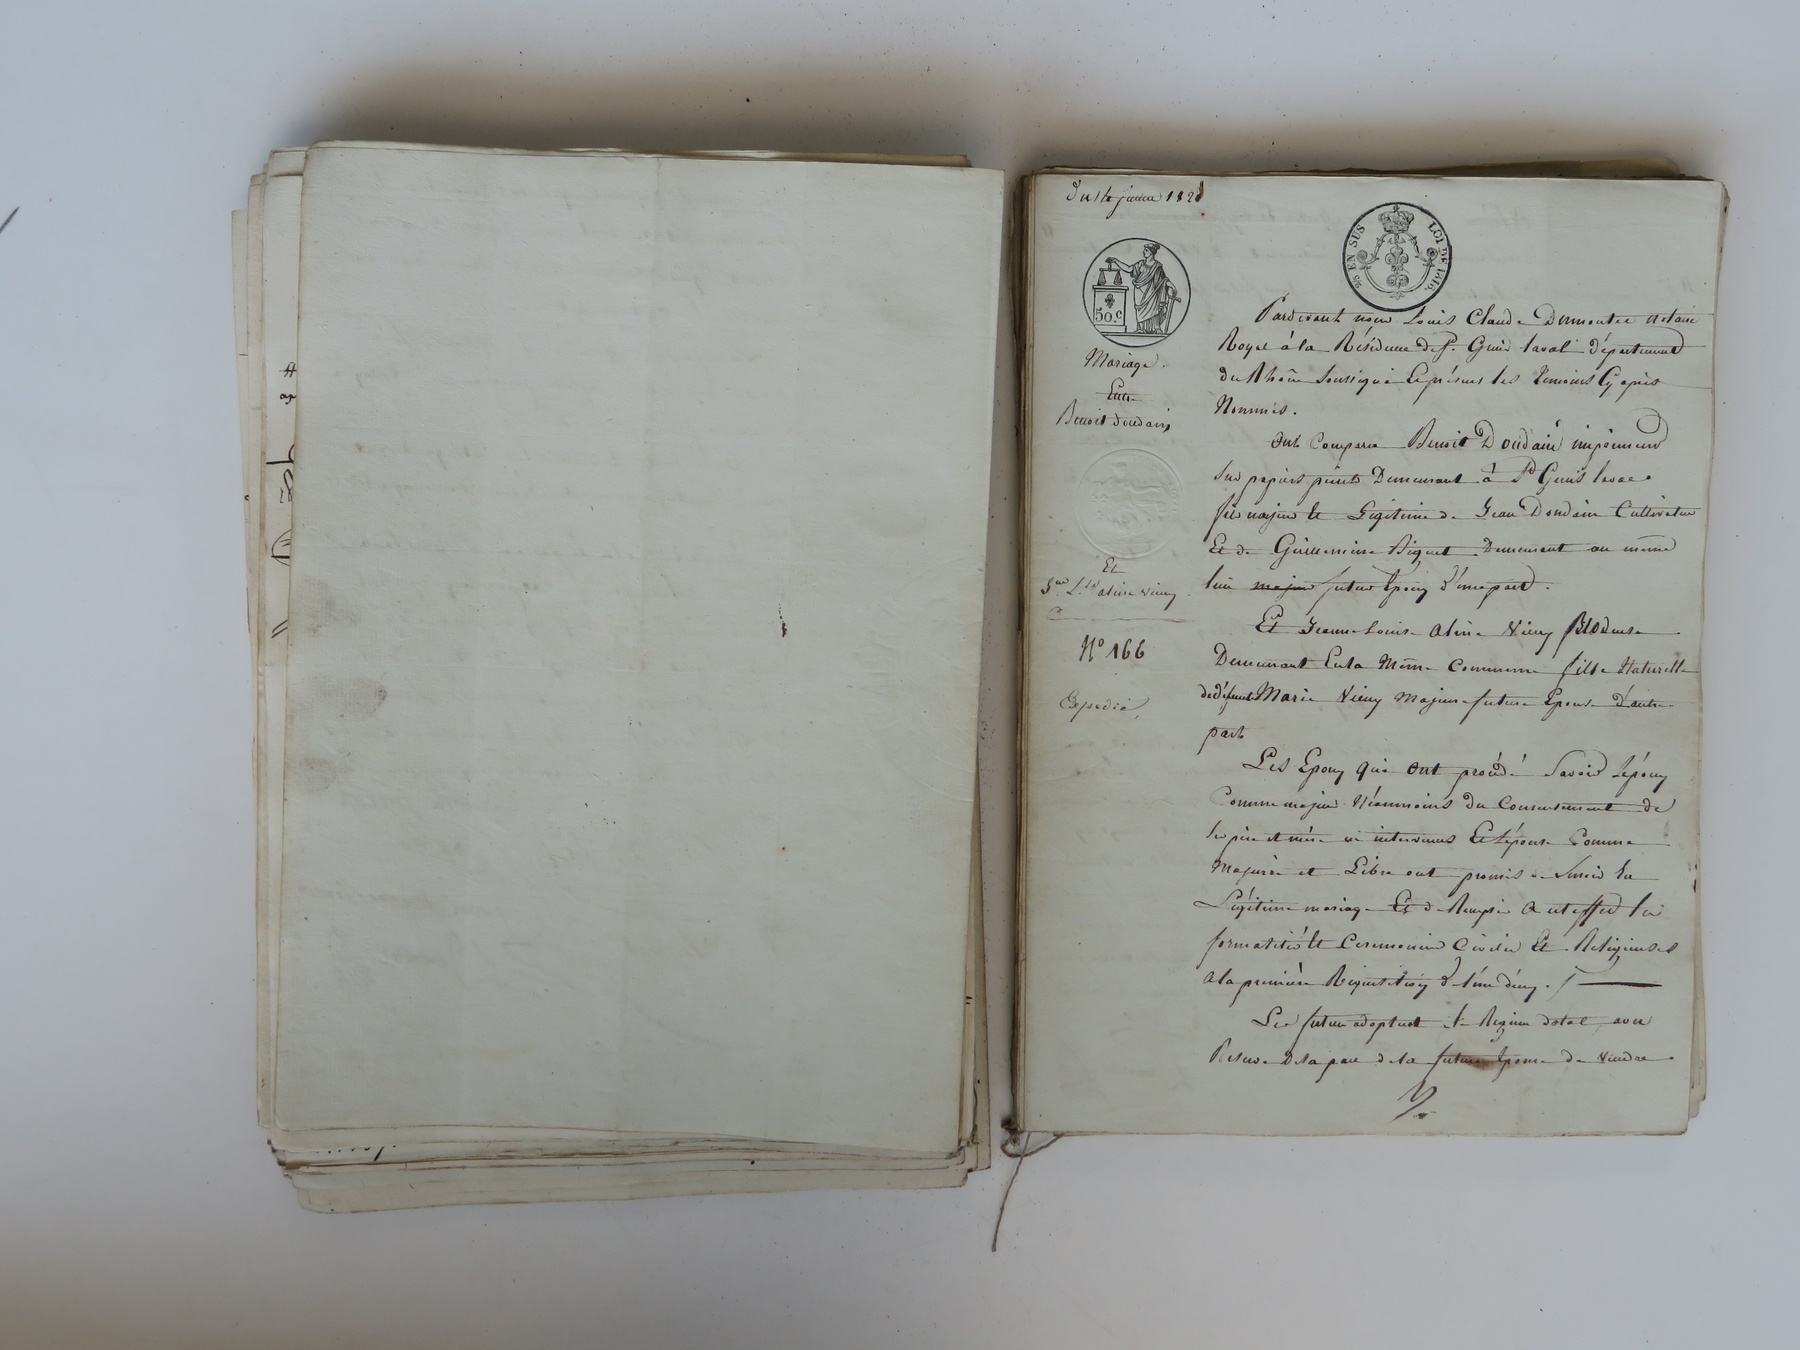 Du 14 janvier 182
50 c
EN SUS
LOI DE 1816.
Mariage.
Entre
Benoit Doudain
Et
Jne Lse aline Vieux
No 166
Expedié,
Pardevant nous Louis Claude Dumontee notaire
Royal à la Résidence de St. Genis laval département
du Rhône Soussigné Et présens les temoins Cy après
Nommés.
Ont Comparu Benoit Doudain imprimeur
Sur papiers peints Demeurant à St Genis laval
fils majeur et Légitime de Jean Doudain Cultivateur
Et de Guillemine Biguet Demeurant au même
lieu majeur futur Epoux d'une part.
Et Jeanne Louise Aline Vieux Brodeuse
Demeurant En la Même Commune fille Naturelle
de défunte Marie Vieux Majeure future Epouse d'autre
part
Les Epoux qui Ont procédé Savoir l'époux
Comme majeur Néanmoins du Consentement de
ses père et mère ici intervenus Et l'épouse Comme
Majeure et Libre ont promis de s'unir en
Légitime mariage Et de Remplir a cet effet les
formalités et Ceremonies Civiles Et Religieuses
a la première Requisition de l'un d'eux.
Les futurs adoptent le Régime dotal, avec
Réserve De la part de la future Epouse de Vendre